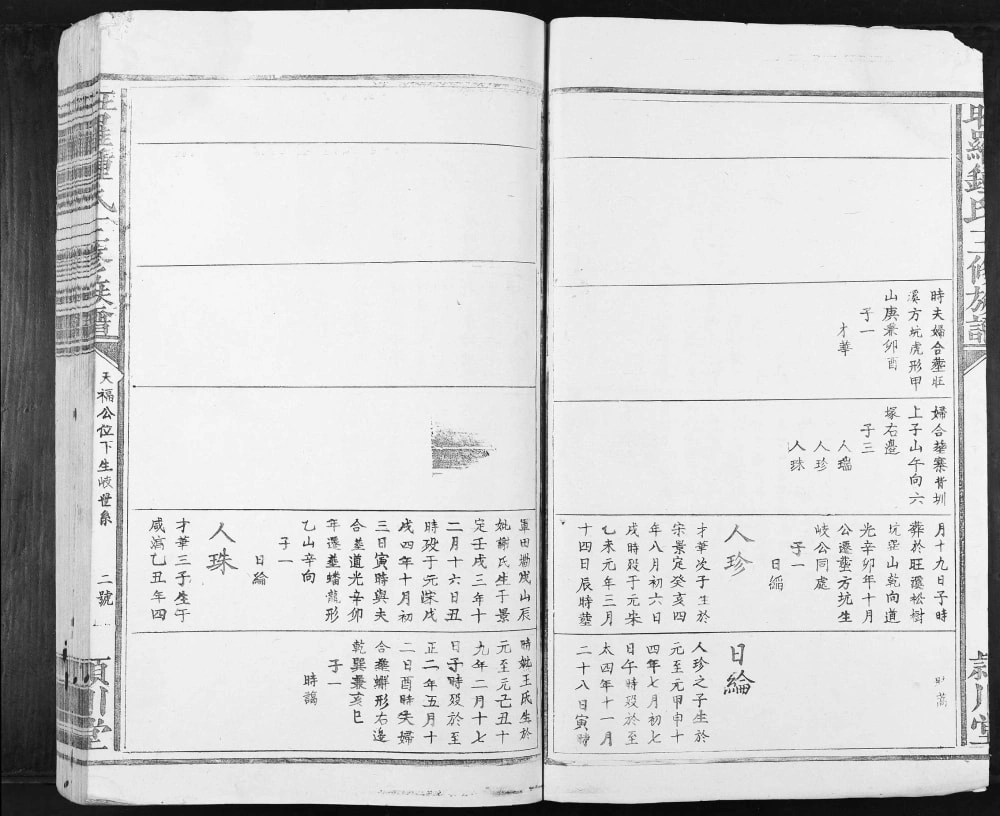 羅鍾氏三修族譜
時夫婦合塟旺
溪方坑虎形甲
山庚兼卯酉
子一
才華
婦合塟寨背圳
上子山午向六
塚右邊
子三
人瑞
人珍
人珠
月十九日子時
葬於旺溪松樹
坑巽山乾向道
光辛卯年十月
公遷塟方坑生
岐公同處
子一
日綸
人珍
才華次子生於
宋景定癸亥四
年八月初六日
戌時殁于元宋
乙未元年三月
十四日辰時塟
時萬
日綸
人珍之子生於
元至元甲申十
四年七月初七
日午時殁於至
太四年十一月
二十八日寅時
潁川堂
軍田坳戌山辰
妣謝氏生于景
定壬戌三年十
二月十六日丑
時殁于元宋戊
戌四年十月初
三日寅時與夫
合塟道光辛卯
年遷塟蟠龍形
乙山辛向
子一
日綸
人珠
才華三子生于
咸淳乙丑年四
時妣王氏生於
元至元己丑十
九年二月十七
日子時殁於至
正二年五月十
二日酉時夫婦
合塟螂形右邊
乾巽兼亥巳
子一
時謁
羅鍾氏三修族譜
天福公位下生岐世系
二號
潁川堂